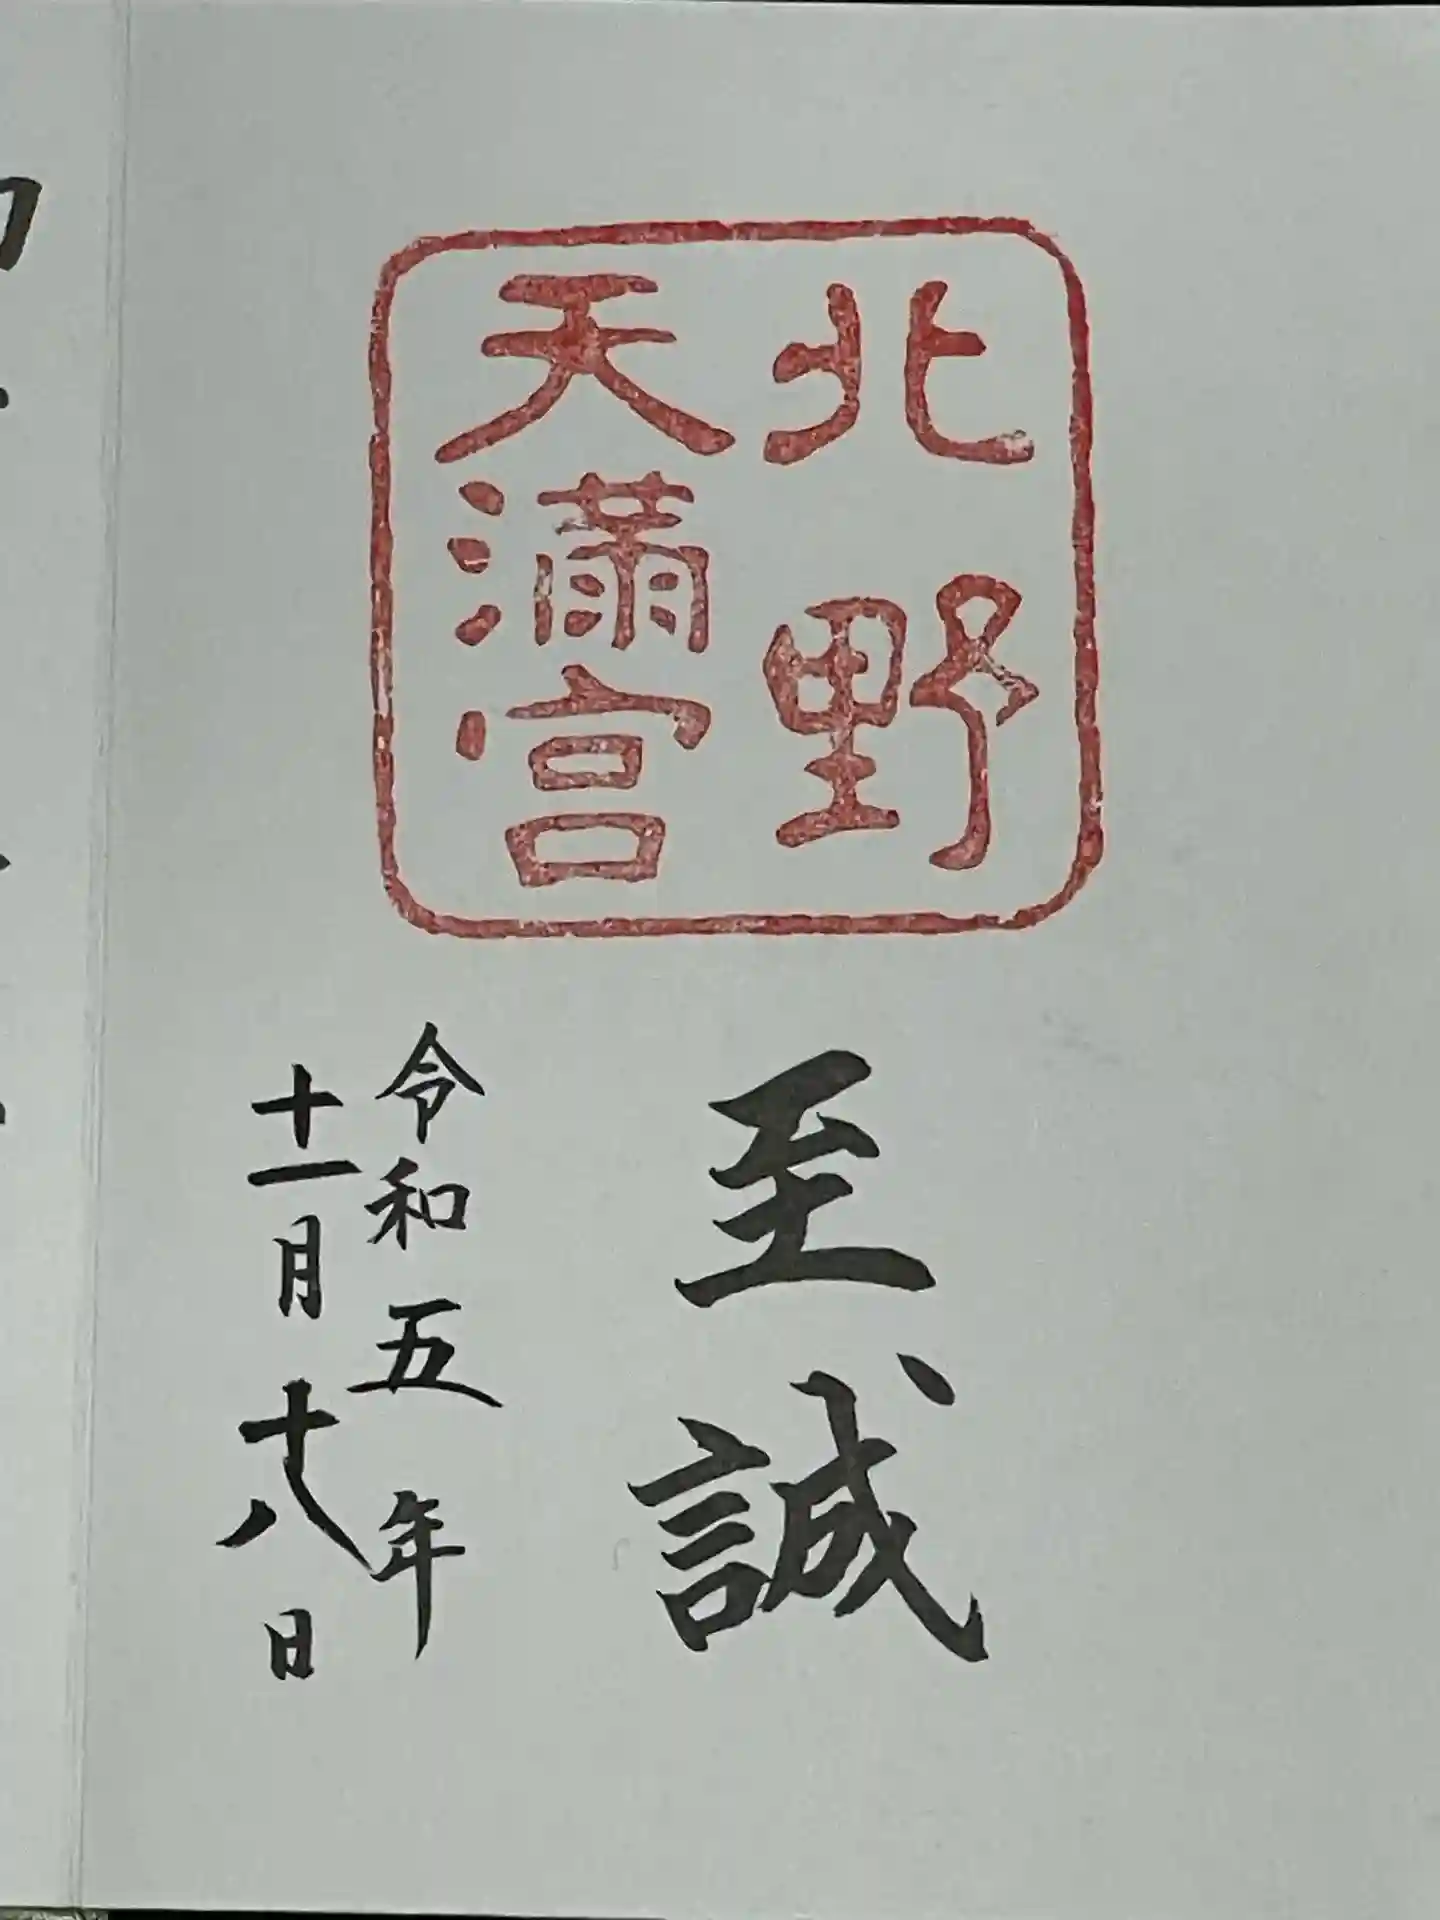 北野
天満宮
至誠
令和五年
十一月十八日